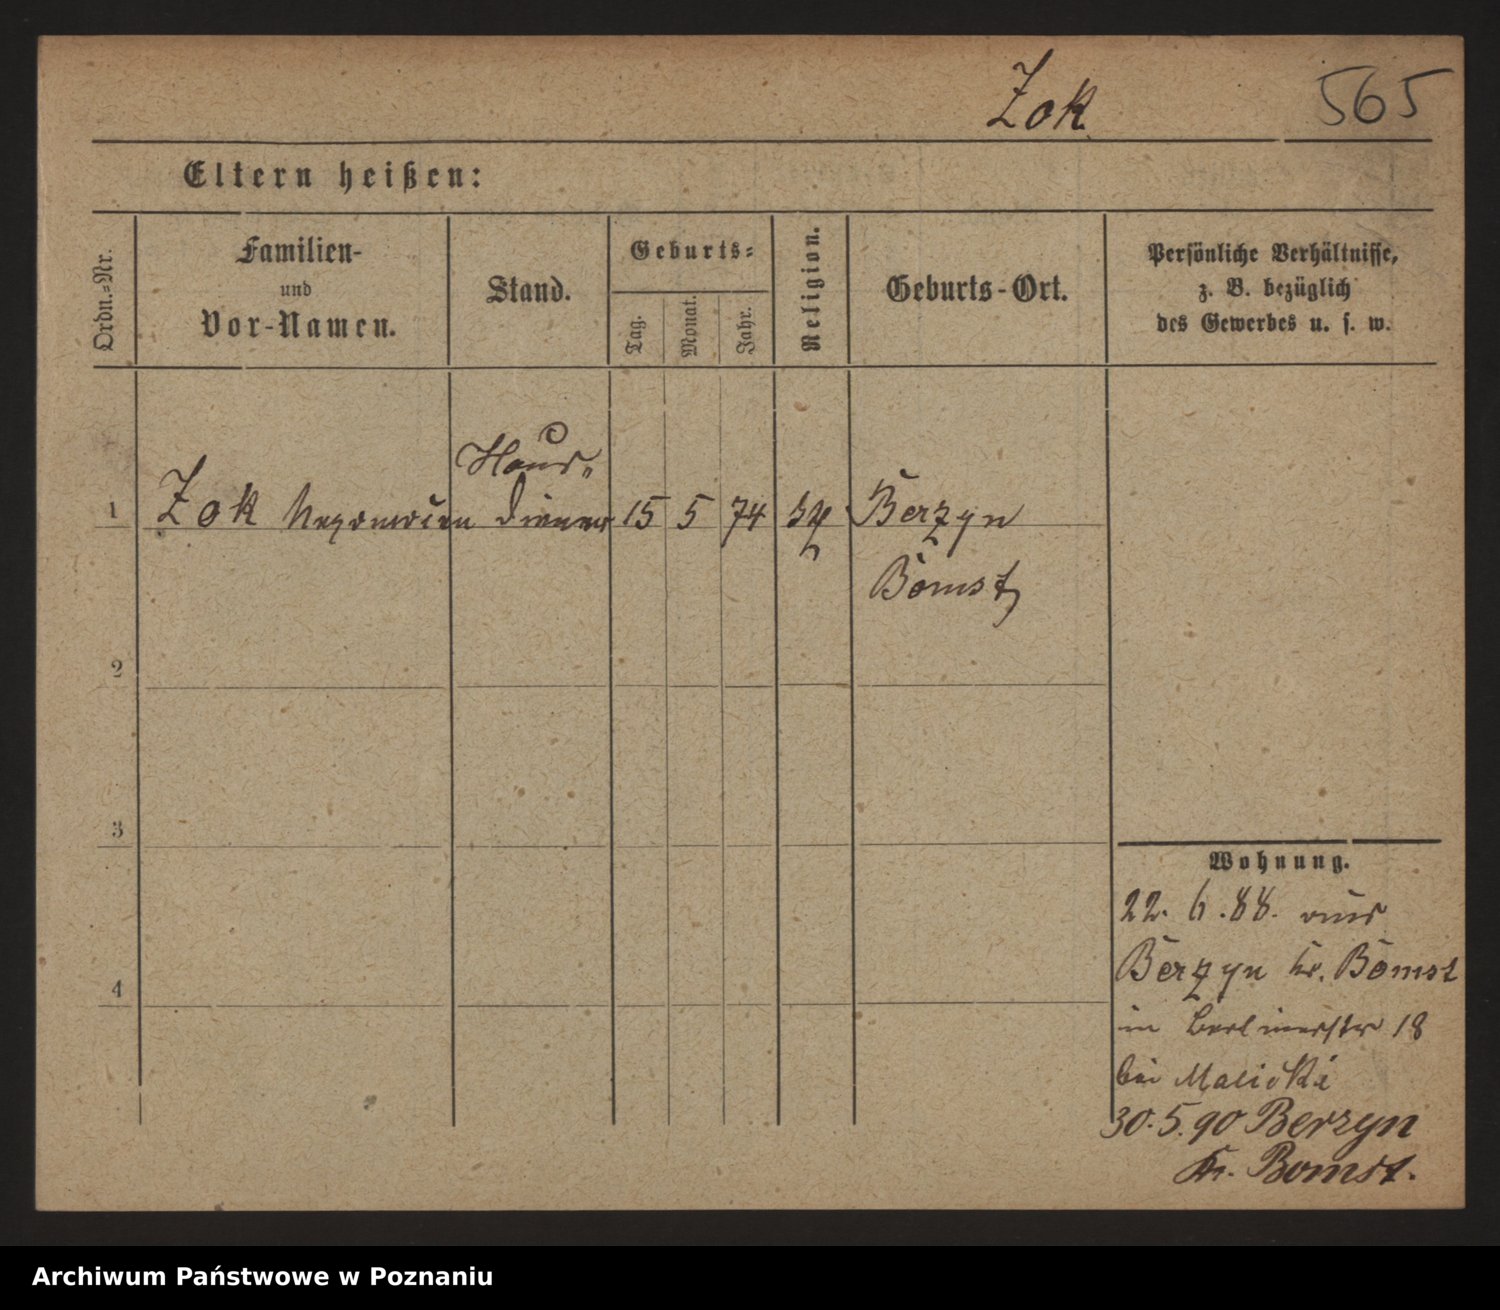 Zok 565
Eltern heißen:
Ordn.-Nr.
Familien-
und
Vor-Namen.
Stand.
Geburts-
Tag.
Monat.
Jahr.
Religion.
Geburts-Ort.
Persönliche Verhältnisse,
z. B. bezüglich
des Gewerbes u. s. w.
Haus-
1 Zok diener 15 5 74 Berzyn
Bomst
2
3
4
Wohnung.
22. 6. 88. aus
Berzyn Kr. Bomst
in Berlinerstr 18
bei Malicki
30. 5. 90 Berzyn
Kr. Bomst.
Archiwum Państwowe w Poznaniu